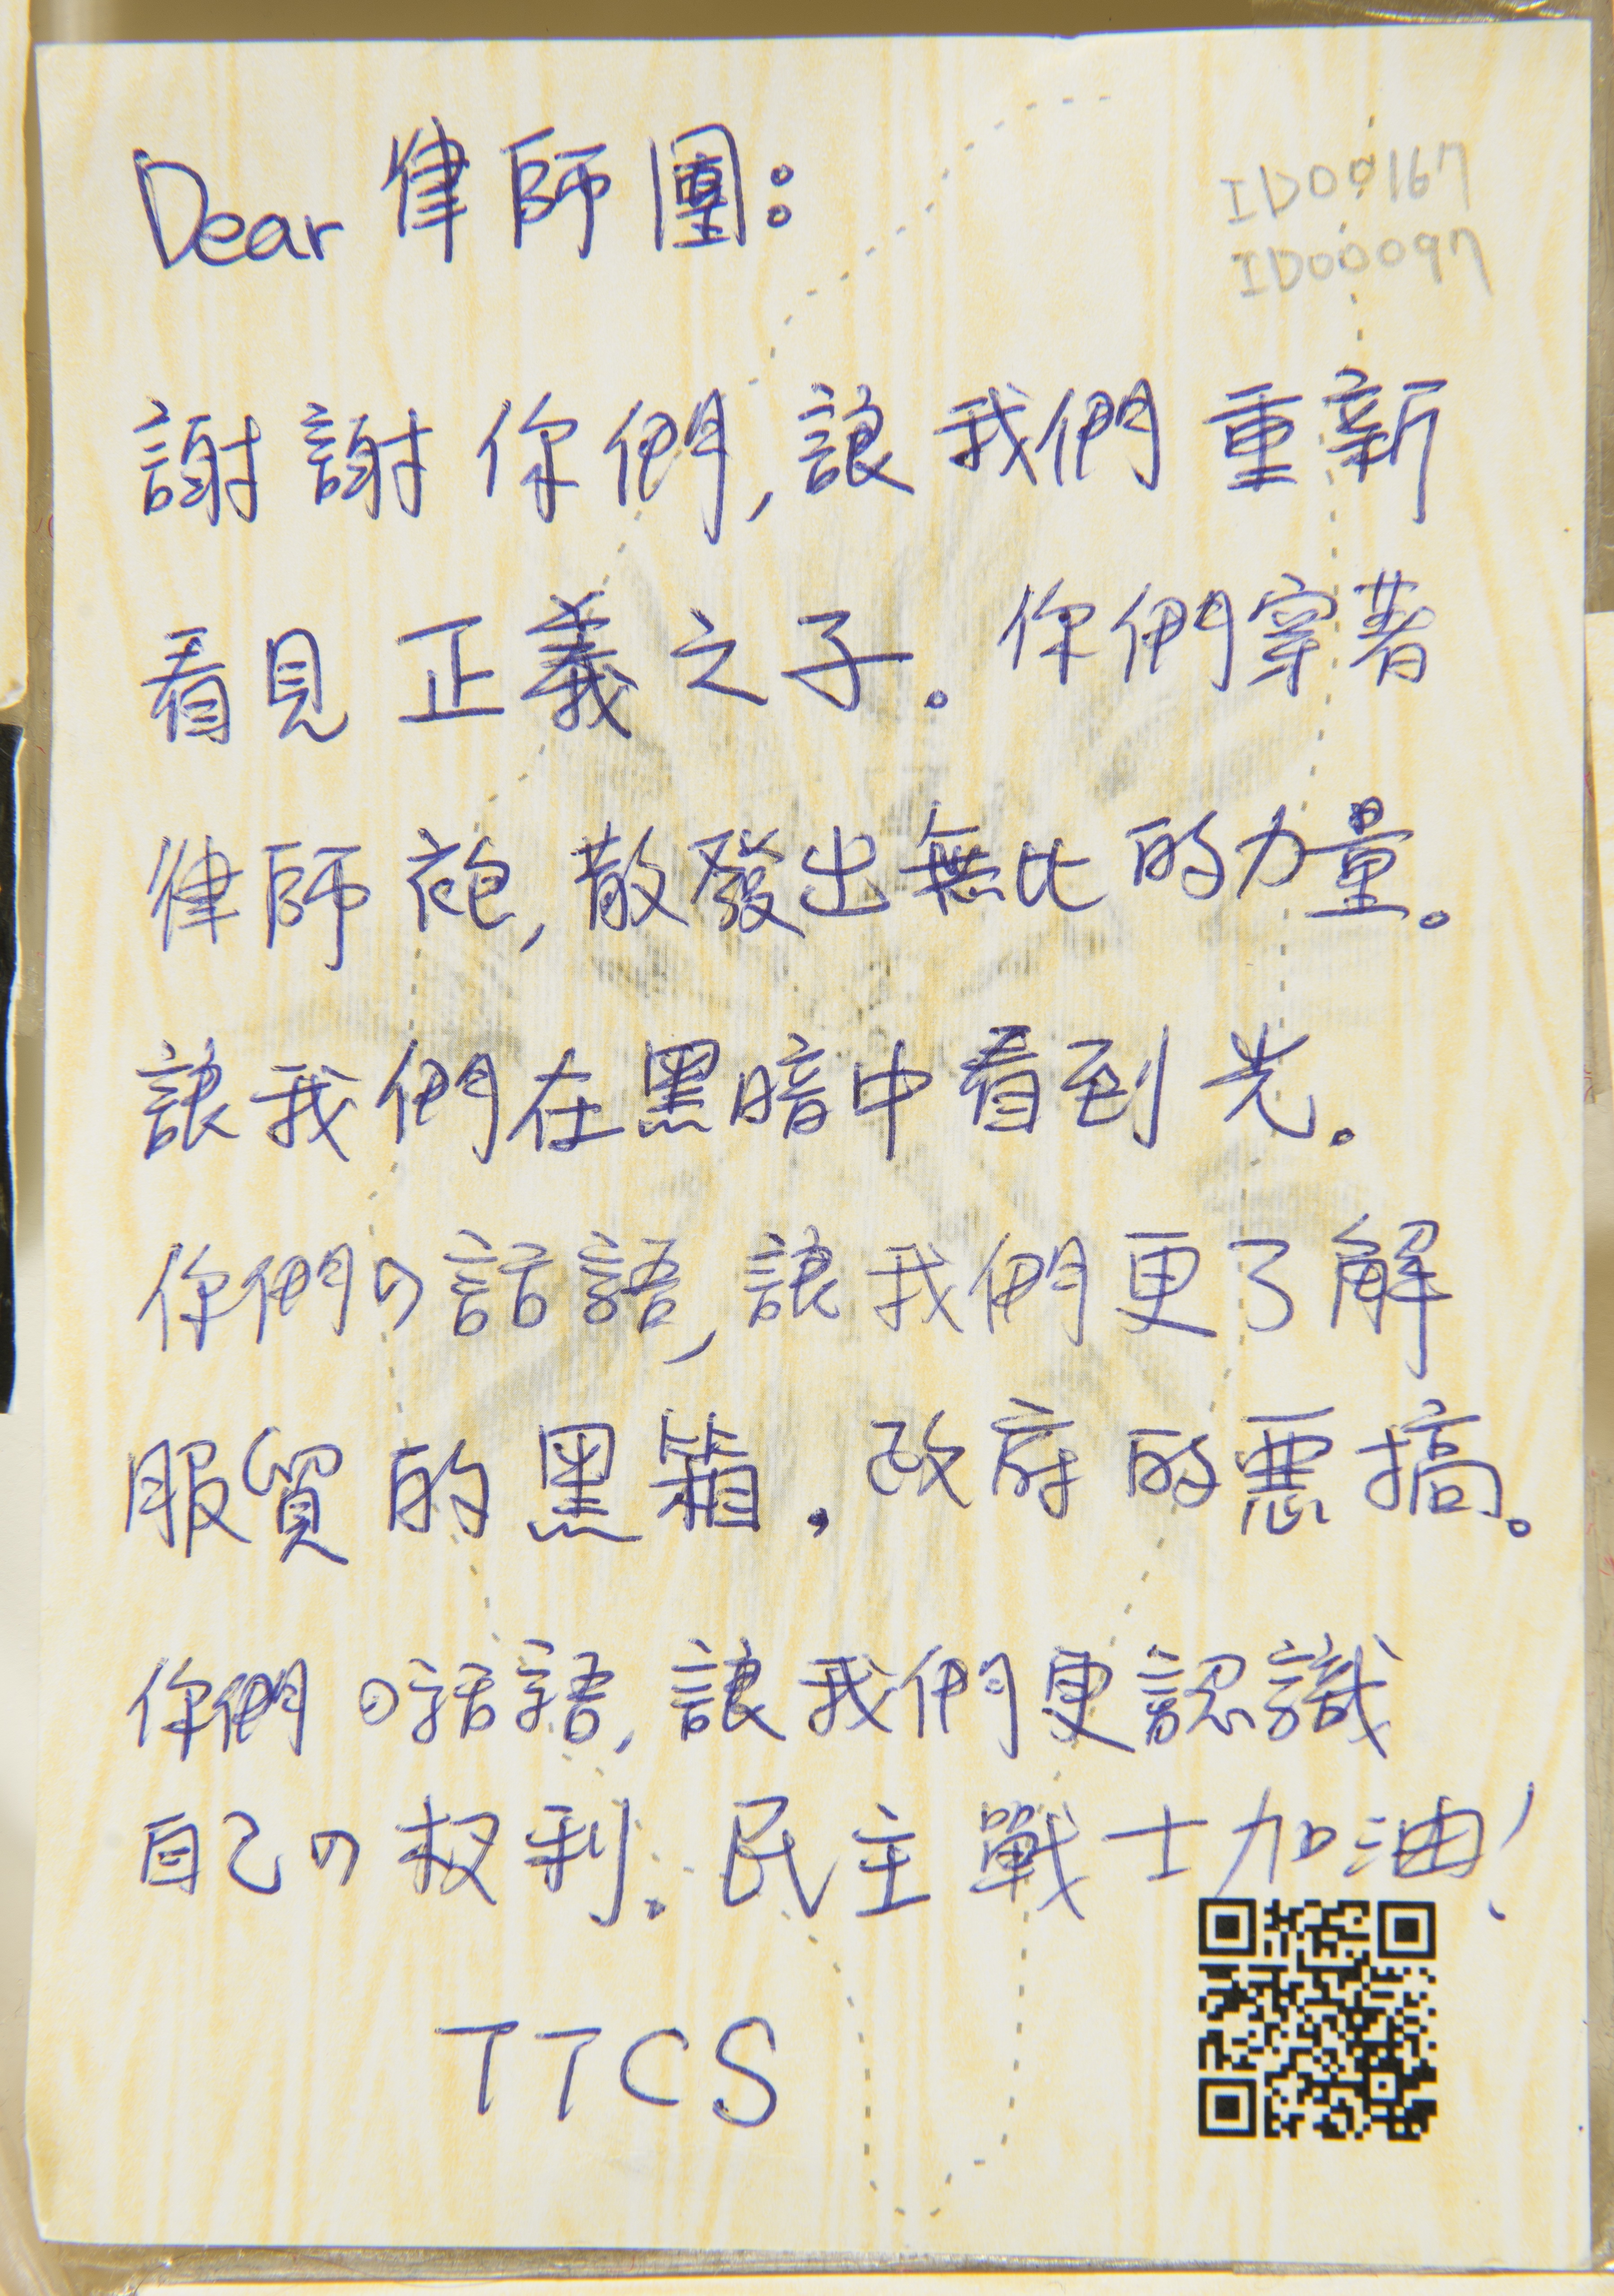 Dear 律師團:
ID00167
ID00097
謝謝你們,讓我們重新
看見正義之子。你們穿著
律師袍,散發出無比的力量。
讓我們在黑暗中看到光。
你們の話語,讓我們更了解
服貿的黑箱,政府的惡搞。
你們の話語,讓我們更認識
自己の权利。民主戰士加油!
TTCS